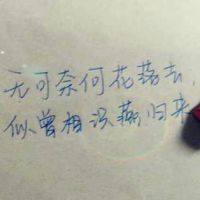 无可奈何花落去，
似曾相识燕归来